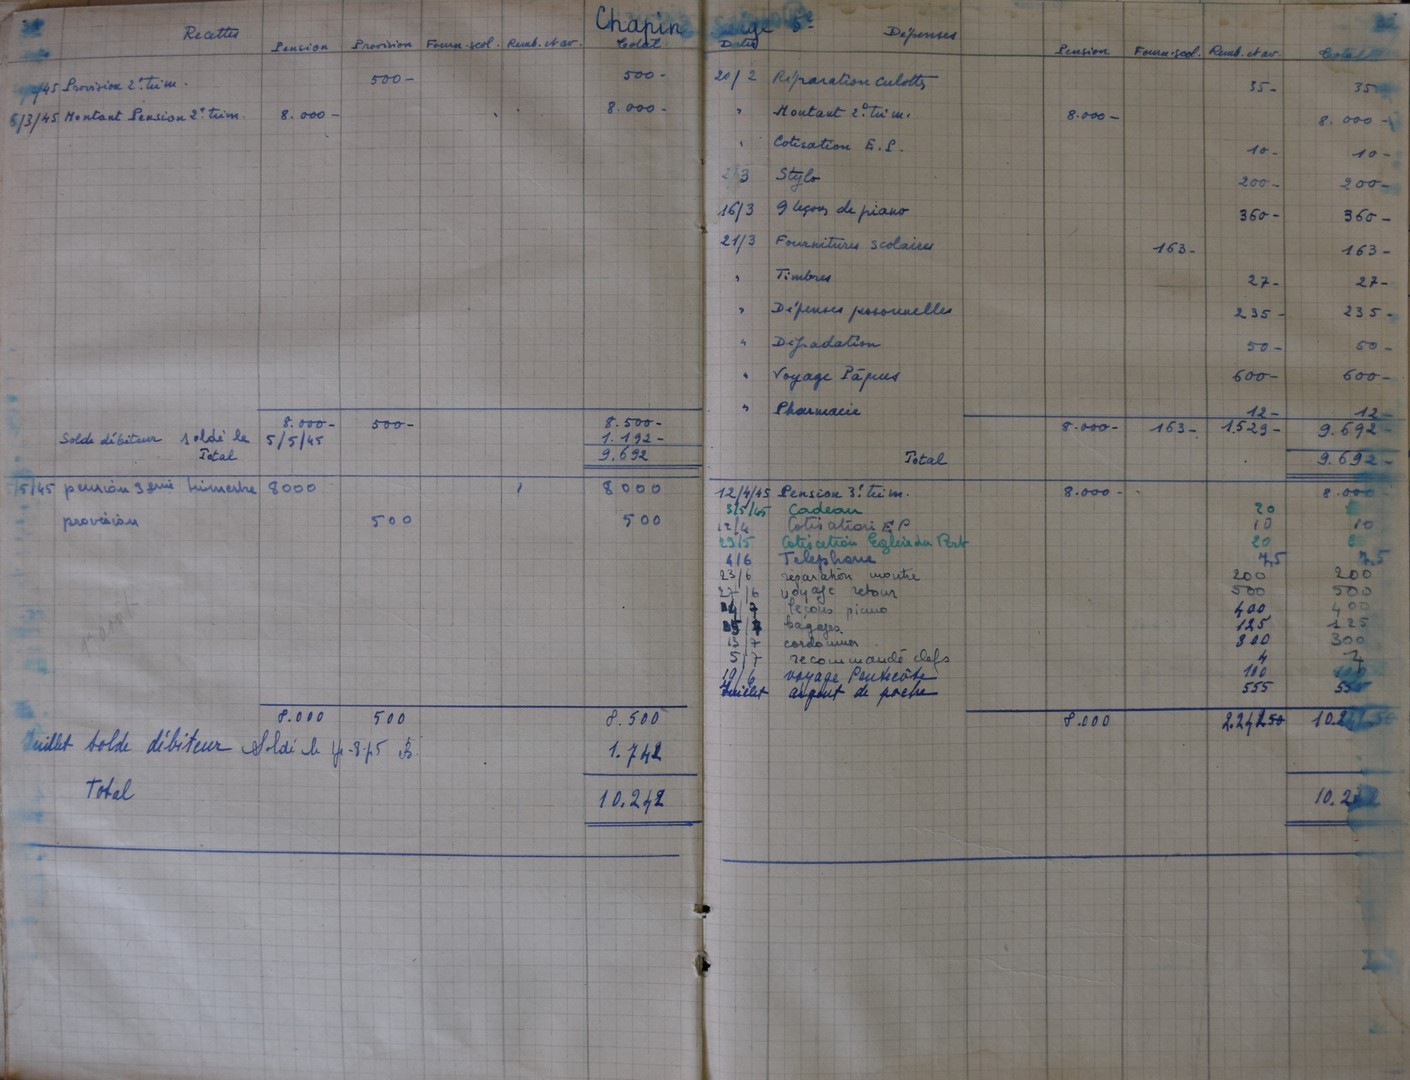 Chapin Serge 5e
Recettes Pension Provision Fourn. scol. Remb. et av. Total
/45 Provision 2e trim. 500- 500-
6/3/45 Montant Pension 2e trim. 8.000- 8.000-
8.000- 500- 8.500-
Solde débiteur soldé le 5/5/45 1.192-
Total 9.692
/5/45 pension 3ème trimestre 8000 8000
provision 500 500
8.000 500 8.500
Juillet solde débiteur Soldé le 1.742
Total 10.242
Dates Dépenses Pension Fourn. scol. Remb. et av. Total
20/2 Réparation culotte 35- 35
" Montant 2e trim. 8.000- 8.000-
" Cotisation E.P. 10- 10-
/3 Stylo 200- 200-
16/3 9 leçons de piano 360- 360-
21/3 Fournitures scolaires 163- 163-
" Timbres 27- 27-
" Dépenses personnelles 235- 235-
" Dégradation 50- 50-
" Voyage Pâques 600- 600-
" Pharmacie 12- 12-
8.000- 163- 1.529- 9.692-
Total 9.692-
12/4/45 Pension 3e trim. 8.000- 8.000-
3/5/45 Cadeau 20
12/4 Cotisation E P 10 10
29/5 Cotisation Eglise du Port 20
4/6 Telephone 7,5 7,5
23/6 réparation montre 200 200
27/6 voyage retour 500 500
leçons piano 400 400
bagages 125 125
13/7 cordonnier 300 300
5/7 recommandé clefs 4
19/6 voyage Pentecôte 100
Juillet argent de poche 555
8.000 2.242 50
10.2